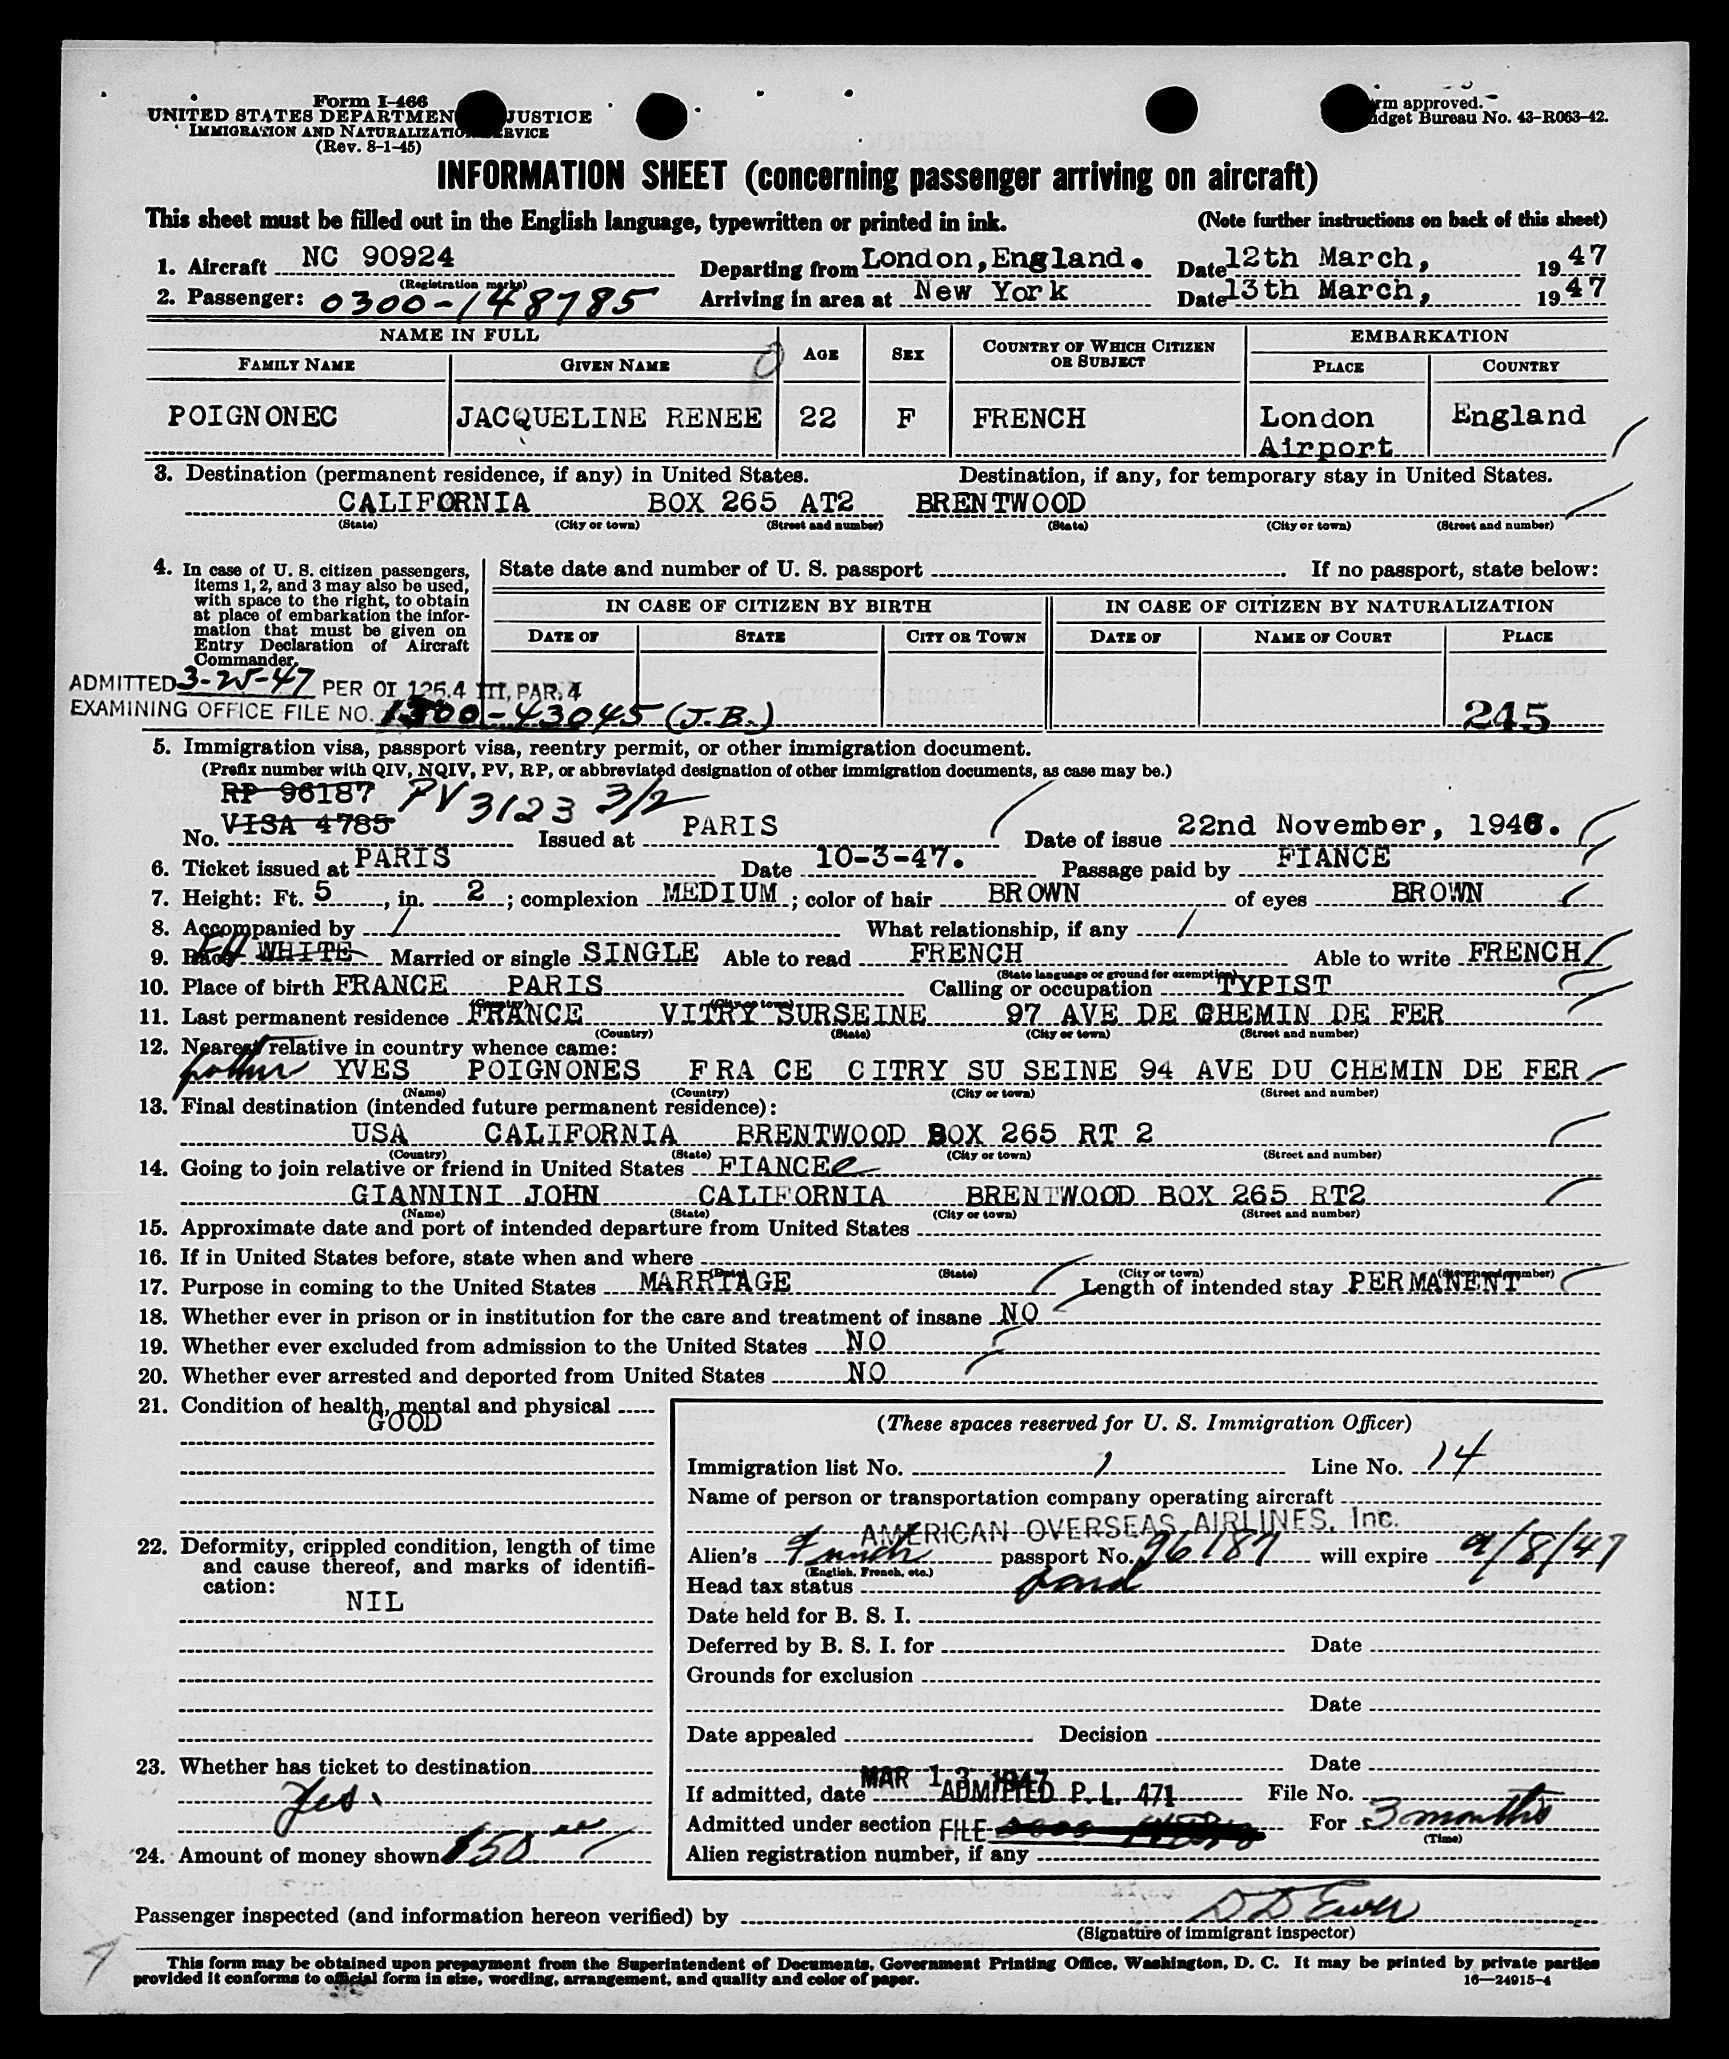 Form I-466
UNITED STATES DEPARTMENT JUSTICE
IMMIGRATION AND NATURALIZATION SERVICE
(Rev. 8-1-45)
rm approved.
dget Bureau No. 43-R063-42.
INFORMATION SHEET (concerning passenger arriving on aircraft)
This sheet must be filled out in the English language, typewritten or printed in ink. (Note further instructions on back of this sheet)
1. Aircraft NC 90924 Departing from London, England. Date 12th March, 1947
(Registration marks)
2. Passenger: 0300-148785 Arriving in area at New York Date 13th March, 1947
NAME IN FULL AGE SEX COUNTRY OF WHICH CITIZEN OR SUBJECT EMBARKATION
FAMILY NAME GIVEN NAME PLACE COUNTRY
POIGNONEC JACQUELINE RENEE 22 F FRENCH London England
Airport
3. Destination (permanent residence, if any) in United States. Destination, if any, for temporary stay in United States.
CALIFORNIA BOX 265 AT2 BRENTWOOD
(State) (City or town) (Street and number) (State) (City or town) (Street and number)
4. In case of U. S. citizen passengers, items 1, 2, and 3 may also be used, with space to the right, to obtain at place of embarkation the information that must be given on Entry Declaration of Aircraft Commander.
State date and number of U. S. passport If no passport, state below:
IN CASE OF CITIZEN BY BIRTH IN CASE OF CITIZEN BY NATURALIZATION
DATE OF STATE CITY OR TOWN DATE OF NAME OF COURT PLACE
ADMITTED 3-25-47 PER OI 125.4 III, PAR. 4
EXAMINING OFFICE FILE NO. 1300-43045 (J.B.)
245
5. Immigration visa, passport visa, reentry permit, or other immigration document.
(Prefix number with QIV, NQIV, PV, RP, or abbreviated designation of other immigration documents, as case may be.)
RP 96187 PV 3123 3/2
No. VISA 4785 Issued at PARIS Date of issue 22nd November, 1946.
6. Ticket issued at PARIS Date 10-3-47. Passage paid by FIANCE
7. Height: Ft. 5, in. 2; complexion MEDIUM; color of hair BROWN of eyes BROWN
8. Accompanied by / What relationship, if any /
9. Race WHITE Married or single SINGLE Able to read FRENCH Able to write FRENCH
(State language or ground for exemption)
10. Place of birth FRANCE PARIS Calling or occupation TYPIST
(Country) (City or town)
11. Last permanent residence FRANCE VITRY SURSEINE 97 AVE DE CHEMIN DE FER
(Country) (State) (City or town) (Street and number)
12. Nearest relative in country whence came:
father YVES POIGNONES FRA CE CITRY SU SEINE 94 AVE DU CHEMIN DE FER
(Name) (Country) (City or town) (Street and number)
13. Final destination (intended future permanent residence):
USA CALIFORNIA BRENTWOOD BOX 265 RT 2
(Country) (State) (City or town) (Street and number)
14. Going to join relative or friend in United States FIANCEe
GIANNINI JOHN CALIFORNIA BRENTWOOD BOX 265 RT2
(Name) (State) (City or town) (Street and number)
15. Approximate date and port of intended departure from United States
16. If in United States before, state when and where
(Date) (State) (City or town) (Street and number)
17. Purpose in coming to the United States MARRIAGE Length of intended stay PERMANENT
18. Whether ever in prison or in institution for the care and treatment of insane NO
19. Whether ever excluded from admission to the United States NO
20. Whether ever arrested and deported from United States NO
21. Condition of health, mental and physical
GOOD
22. Deformity, crippled condition, length of time and cause thereof, and marks of identification:
NIL
23. Whether has ticket to destination
Yes.
24. Amount of money shown $50 00
(These spaces reserved for U. S. Immigration Officer)
Immigration list No. 1 Line No. 14
Name of person or transportation company operating aircraft
AMERICAN OVERSEAS AIRLINES, Inc.
Alien's French passport No. 96187 will expire 9/8/47
(English, French, etc.)
Head tax status paid
Date held for B. S. I.
Deferred by B. S. I. for Date
Grounds for exclusion
Date
Date appealed Decision
Date
If admitted, date MAR 13 1947 ADMITTED P. L. 471 File No.
Admitted under section FILE For 3 months
(Time)
Alien registration number, if any
Passenger inspected (and information hereon verified) by
(Signature of immigrant inspector)
This form may be obtained upon prepayment from the Superintendent of Documents, Government Printing Office, Washington, D. C. It may be printed by private parties
provided it conforms to official form in size, wording, arrangement, and quality and color of paper. 16—24915-4